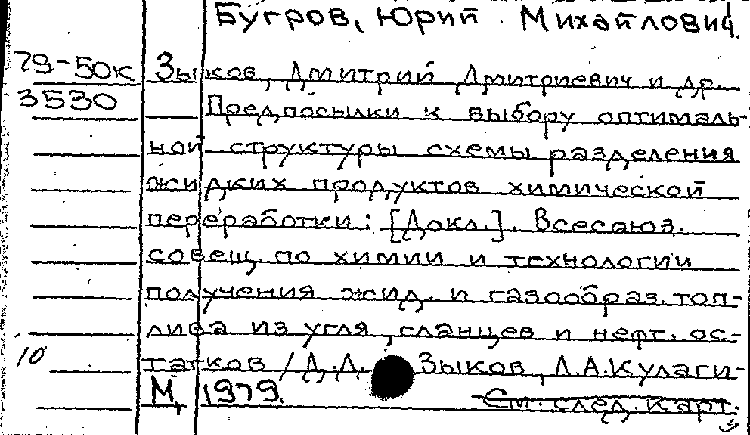 Бугров, Юрий Михайлович.
79-50к Зыков, Дмитрий Дмитриевич и др.
3530 Предпосылки к выбору оптималь-
ной структуры схемы разделения
жидких продуктов химической
переработки: [Докл.]. Всесоюз.
совещ. по химии и технологии
получения жид. и газообраз. топ-
лива из угля, сланцев и нефт. ос-
10 татков / Д.Д. Зыков, Л.А. Кулаги-
М, 1979. См. след. карт.